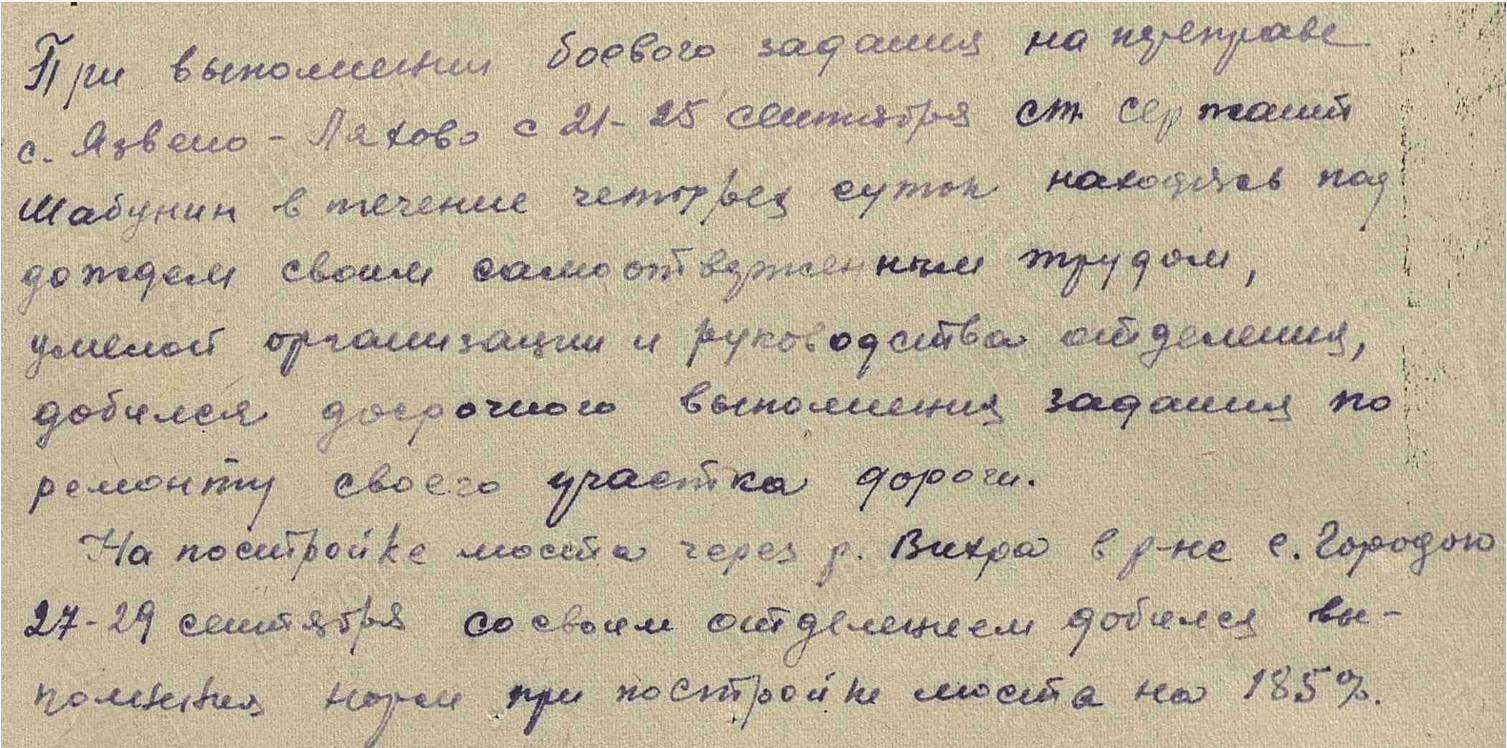 При выполнении боевого задания на переправе
с. Язвено - Ляхово с 21-25 сентября ст. сержант
Шабунин в течение четырех суток находясь под
дождем своим самоотверженным трудом,
умелой организации и руководства отделения,
добился досрочного выполнения задания по
ремонту своего участка дороги.
На постройке моста через р. Вихра в р-не с. Городок
27-29 сентября со своим отделением добился вы-
полнения норм при постройке моста на 185%.